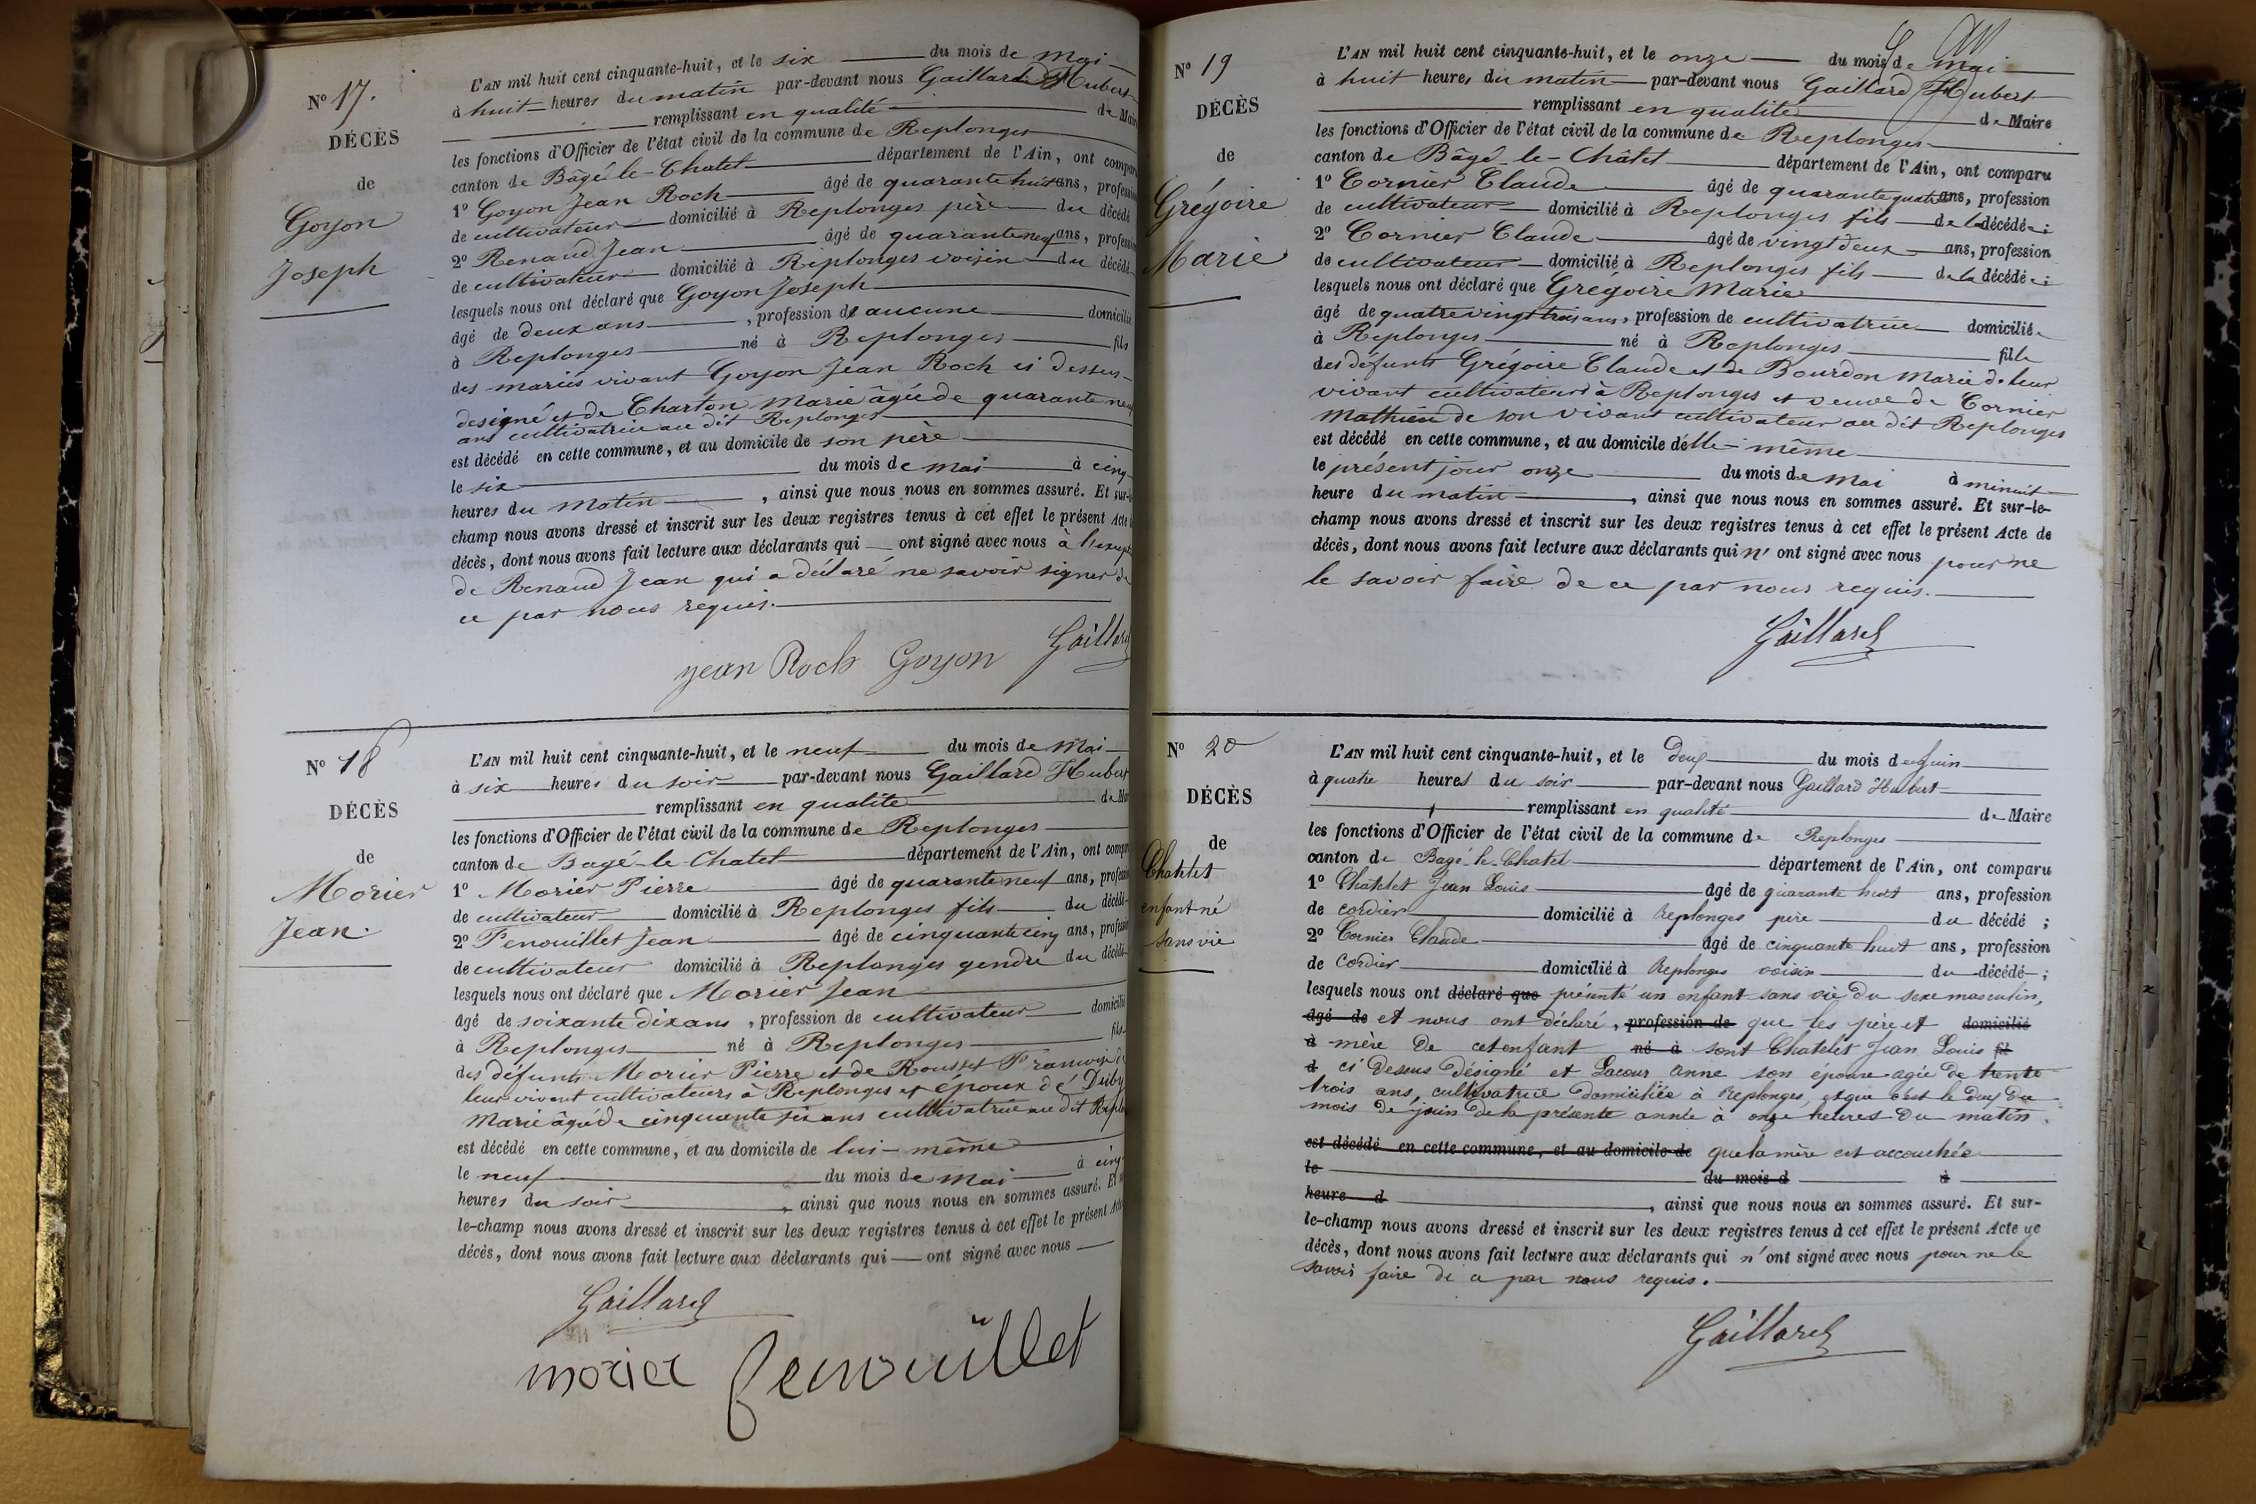 N° 17.
DÉCÈS
de
Goyon
Joseph
L'AN mil huit cent cinquante-huit, et le six du mois de Mai
à huit heures du matin par-devant nous Gaillard Hubert
remplissant en qualité de Maire
les fonctions d'Officier de l'état civil de la commune de Replonges
canton de Bâgé-le-Chatel département de l'Ain, ont comparu
1° Goyon Jean Roch âgé de quarante huit ans, profession
de cultivateur domicilié à Replonges père du décédé
2° Renaud Jean âgé de quarante neuf ans, profession
de cultivateur domicilié à Replonges voisin du décédé
lesquels nous ont déclaré que Goyon Joseph
âgé de deux ans, profession de aucune domicilié
à Replonges né à Replonges fils
des mariés vivant Goyon Jean Roch ci dessus
designé et de Charton Marie âgée de quarante neuf
ans cultivatrice au dit Replonges
est décédé en cette commune, et au domicile de son père
le six du mois de mai à cinq
heures du matin, ainsi que nous nous en sommes assuré. Et sur-le
champ nous avons dressé et inscrit sur les deux registres tenus à cet effet le présent Acte
décès, dont nous avons fait lecture aux déclarants qui ont signé avec nous à l'excep
de Renaud Jean qui a déclaré ne savoir signer de
ce par nous requis.
Jean Roch Goyon Gaillard
N° 18
DÉCÈS
de
Morier
Jean.
L'AN mil huit cent cinquante-huit, et le neuf du mois de Mai
à six heures du soir par-devant nous Gaillard Hubert
remplissant en qualité de Mai
les fonctions d'Officier de l'état civil de la commune de Replonges
canton de Bagé-le-Chatel département de l'Ain, ont compar
1° Morier Pierre âgé de quarante neuf ans, profession
de cultivateur domicilié à Replonges fils du décédé
2° Fenouillet Jean âgé de cinquante cinq ans, profession
de cultivateur domicilié à Replonges gendre du décédé
lesquels nous ont déclaré que Morier Jean
âgé de soixante dix ans, profession de cultivateur domicilié
à Replonges né à Replonges fils
des défunts Morier Pierre et de Rousset Françoise de
leur vivant cultivateurs à Replonges et époux de
Marie âgée de cinquante six ans cultivatrice au dit Replo
est décédé en cette commune, et au domicile de lui-même
le neuf du mois de Mai à cinq
heures du soir, ainsi que nous nous en sommes assuré. Et
le-champ nous avons dressé et inscrit sur les deux registres tenus à cet effet le présent Acte
décès, dont nous avons fait lecture aux déclarants qui ont signé avec nous
Gaillard
morier fenouillet
N° 19
DÉCÈS
de
Grégoire
Marie
L'AN mil huit cent cinquante-huit, et le onze du mois de Mai
à huit heures du matin par-devant nous Gaillard Hubert
remplissant en qualité de Maire
les fonctions d'Officier de l'état civil de la commune de Replonges
canton de Bâgé-le-Châtel département de l'Ain, ont comparu
1° Cornier Claude âgé de quarante quatre ans, profession
de cultivateur domicilié à Replonges fils de la décédée;
2° Cornier Claude âgé de vingt deux ans, profession
de cultivateur domicilié à Replonges fils de la décédée;
lesquels nous ont déclaré que Grégoire Marie
âgé de quatre vingt trois ans, profession de cultivatrice domiciliée
à Replonges né à Replonges fille
des défunts Grégoire Claude et de Bourdon Marie de leur
vivant cultivateurs à Replonges et veuve de Cornier
Mathieu de son vivant cultivateur au dit Replonges
est décédé en cette commune, et au domicile d'elle-même
le présent jour onze du mois de Mai à minuit
heure du matin, ainsi que nous nous en sommes assuré. Et sur-le-
champ nous avons dressé et inscrit sur les deux registres tenus à cet effet le présent Acte de
décès, dont nous avons fait lecture aux déclarants qui n'ont signé avec nous pour ne
le savoir faire de ce par nous requis.
Gaillard
N° 20
DÉCÈS
de
Chatelet
enfant né
sans vie
L'AN mil huit cent cinquante-huit, et le deux du mois de Juin
à quatre heures du soir par-devant nous Gaillard Hubert
remplissant en qualité de Maire
les fonctions d'Officier de l'état civil de la commune de Replonges
canton de Bagé-le-Chatel département de l'Ain, ont comparu
1° Chatelet Jean Louis âgé de quarante huit ans, profession
de cordier domicilié à Replonges père du décédé;
2° Cornier Claude âgé de cinquante huit ans, profession
de cordier domicilié à Replonges voisin du décédé;
lesquels nous ont déclaré que présenté un enfant sans vie du sexe masculin,
âgé de et nous ont déclaré, profession de que les père et domicilié
à mère de cet enfant né à sont Chatelet Jean Louis fil
d ci dessus désigné et Lacour Anne son épouse agée de trente
trois ans, cultivatrice domiciliée à Replonges, et que c'est le deux du
mois de juin de la présente année à onze heures du matin
est décédé en cette commune, et au domicile de que la mère est accouchée
le du mois d à
heure d, ainsi que nous nous en sommes assuré. Et sur-
le-champ nous avons dressé et inscrit sur les deux registres tenus à cet effet le présent Acte de
décès, dont nous avons fait lecture aux déclarants qui n'ont signé avec nous pour ne le
savoir faire de ce par nous requis.
Gaillard